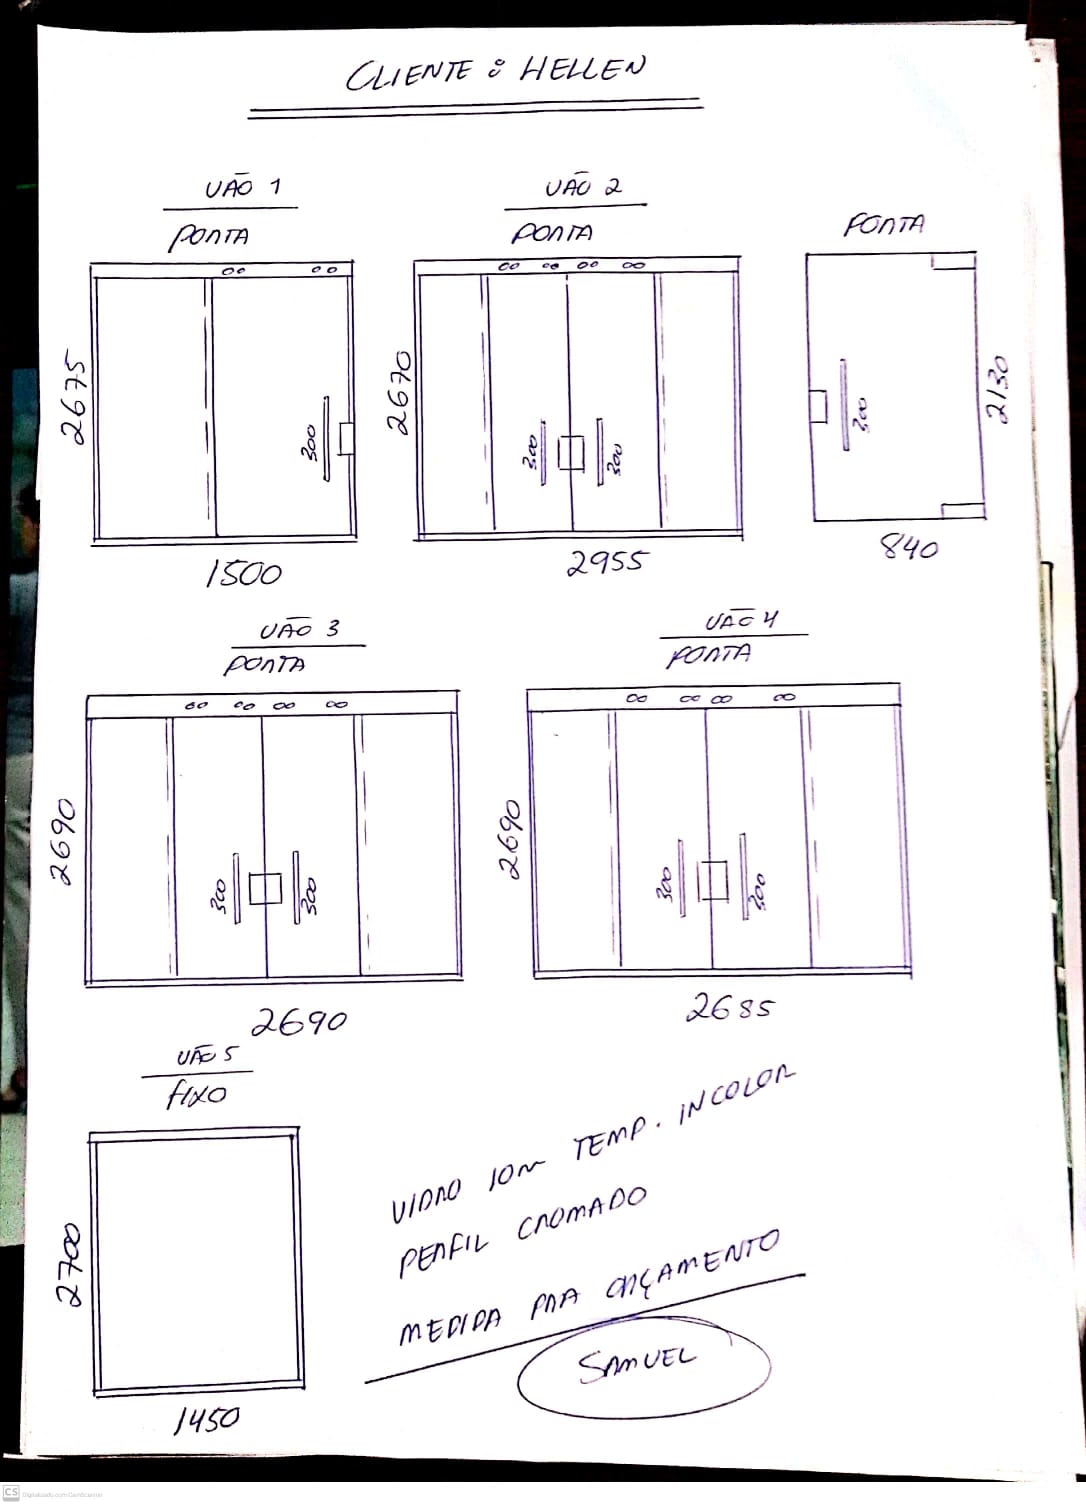 CLIENTE : HELLEN
VÃO 1
PORTA
2675
300
1500
VÃO 2
PORTA
2670
300
300
2955
PORTA
300
2130
840
VÃO 3
PORTA
2690
300
300
2690
VÃO 4
PORTA
2690
300
300
2685
VÃO 5
FIXO
2700
1450
VIDRO 10m TEMP. INCOLOR
PERFIL CROMADO
MEDIDA PRA ORÇAMENTO
SAMUEL
CS Digitalizado com CamScanner